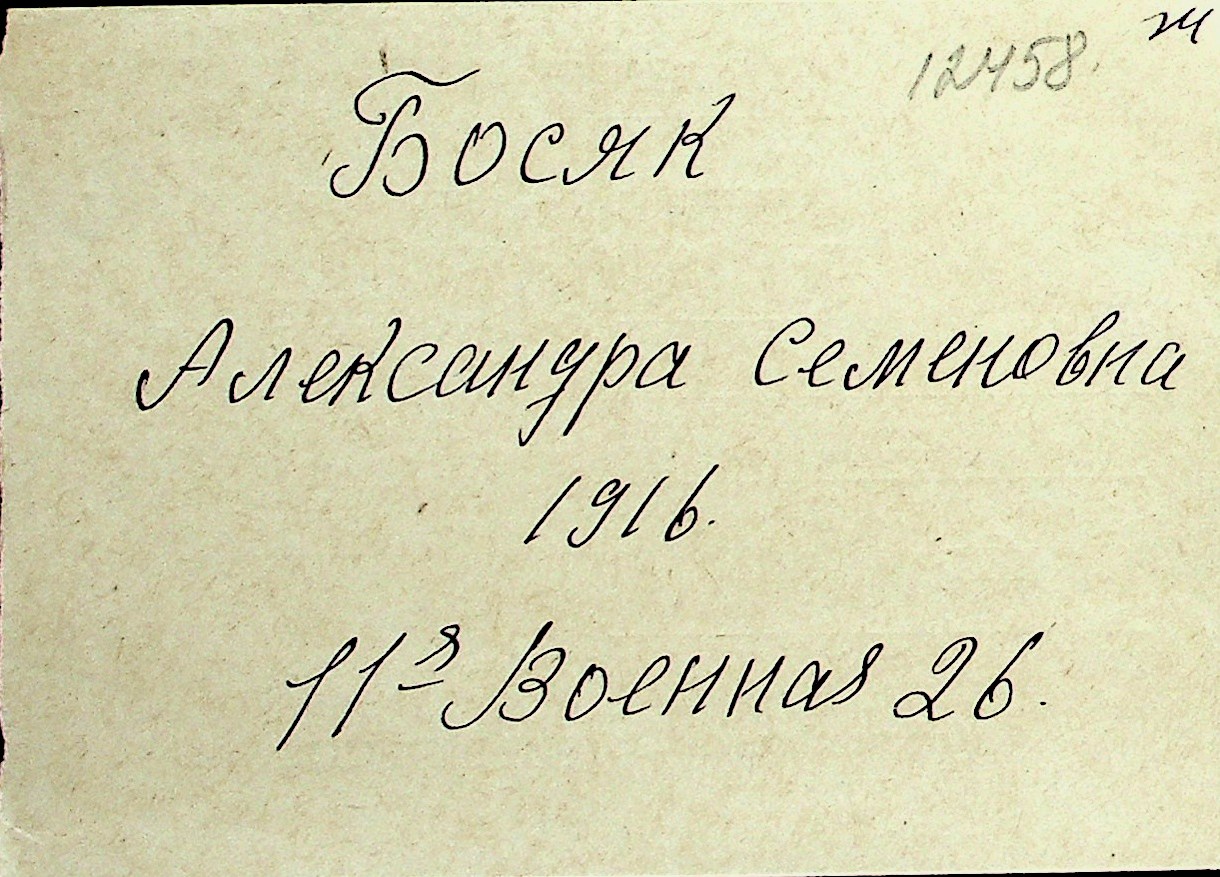 12458. ж
Босяк
Александра Семеновна
1916.
11я Военная 26.